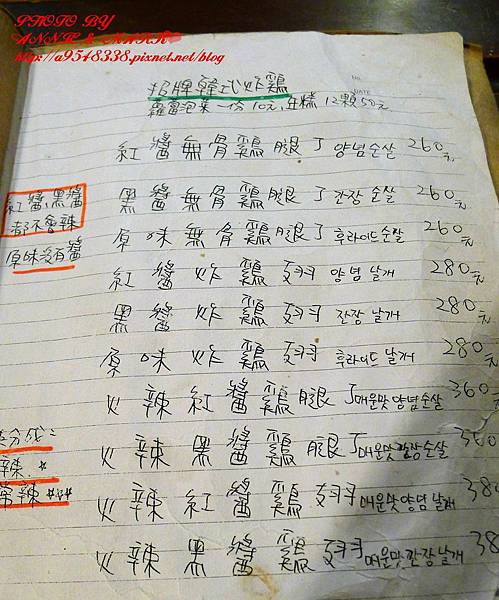 PHOTO BY
ANNIE & MARK
http://a9548338.pixnet.net/blog
NO.
DATE
招牌韓式炸鷄
蘿蔔泡菜一份10元,年糕12顆50元
紅醬無骨鷄腿丁 양념순살 260元
黑醬無骨鷄腿丁 간장순살 260元
原味無骨鷄腿丁 후라이드순살 260元
紅醬炸鷄翅 양념날개 280元
黑醬炸鷄翅 간장날개 280元
原味炸鷄翅 후라이드날개 280元
火辣紅醬鷄腿丁 매운맛양념순살 360元
火辣黑醬鷄腿丁 매운맛간장순살 360元
火辣紅醬鷄翅 매운맛양념날개 38
火辣黑醬鷄翅 매운맛간장날개 38
紅醬,黑醬
都不會辣
原味沒有醬
分成:
辣 *
常辣 ***